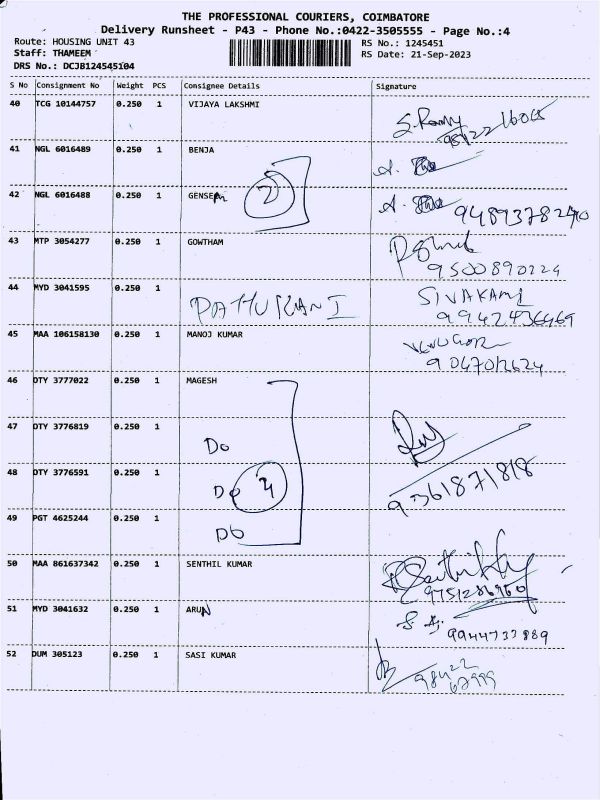 THE PROFESSIONAL COURIERS, COIMBATORE
Delivery Runsheet - P43 - Phone No.:0422-3505555 - Page No.:4
Route: HOUSING UNIT 43
RS No.: 1245451
Staff: THAMEEM
RS Date: 21-Sep-2023
DRS No.: DCJB124545104
S No Consignment No Weight PCS Consignee Details Signature
40 TCG 10144757 0.250 1 VIJAYA LAKSHMI
41 NGL 6016489 0.250 1 BENJA
2
42 NGL 6016488 0.250 1 GENSEN
9489378290
43 MTP 3054277 0.250 1 GOWTHAM
9500890224
44 MYD 3041595 0.250 1 SIVAKAMI
9942436469
45 MAA 106158130 0.250 1 MANOJ KUMAR
9047012624
46 DTY 3777022 0.250 1 MAGESH
47 DTY 3776819 0.250 1
Do
48 DTY 3776591 0.250 1
Do 4
9361871818
49 PGT 4625244 0.250 1
Do
50 MAA 861637342 0.250 1 SENTHIL KUMAR
51 MYD 3041632 0.250 1 ARUN
9944733889
52 DUM 305123 0.250 1 SASI KUMAR